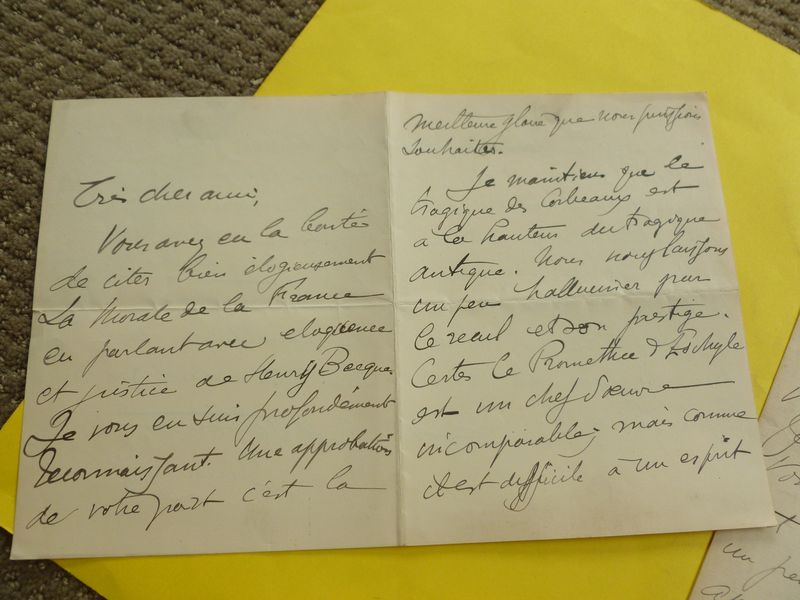 Très cher ami,
Vous avez eu la bonté
de citer bien élogieusement
La Morale de la France
en parlant avec éloquence
et justice de Henry Becque.
Je vous en suis profondément
reconnaissant. Une approbation
de votre part c'est la
meilleure gloire que nous puissions
souhaiter.
Je maintiens que le
tragique des Corbeaux est
à la hauteur du tragique
antique. Nous nous laissons
un peu halluciner par
le recul et son prestige.
Certes le Promethée d'Eschyle
est un chef d'œuvre
incomparable; mais comme
il est difficile à un esprit
un pe